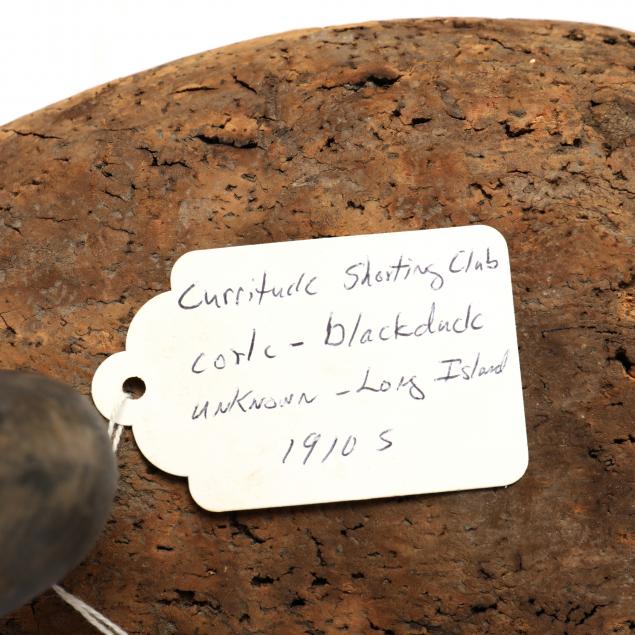 Currituck Shooting Club
cork - blackduck
unknown - Long Island
1910s